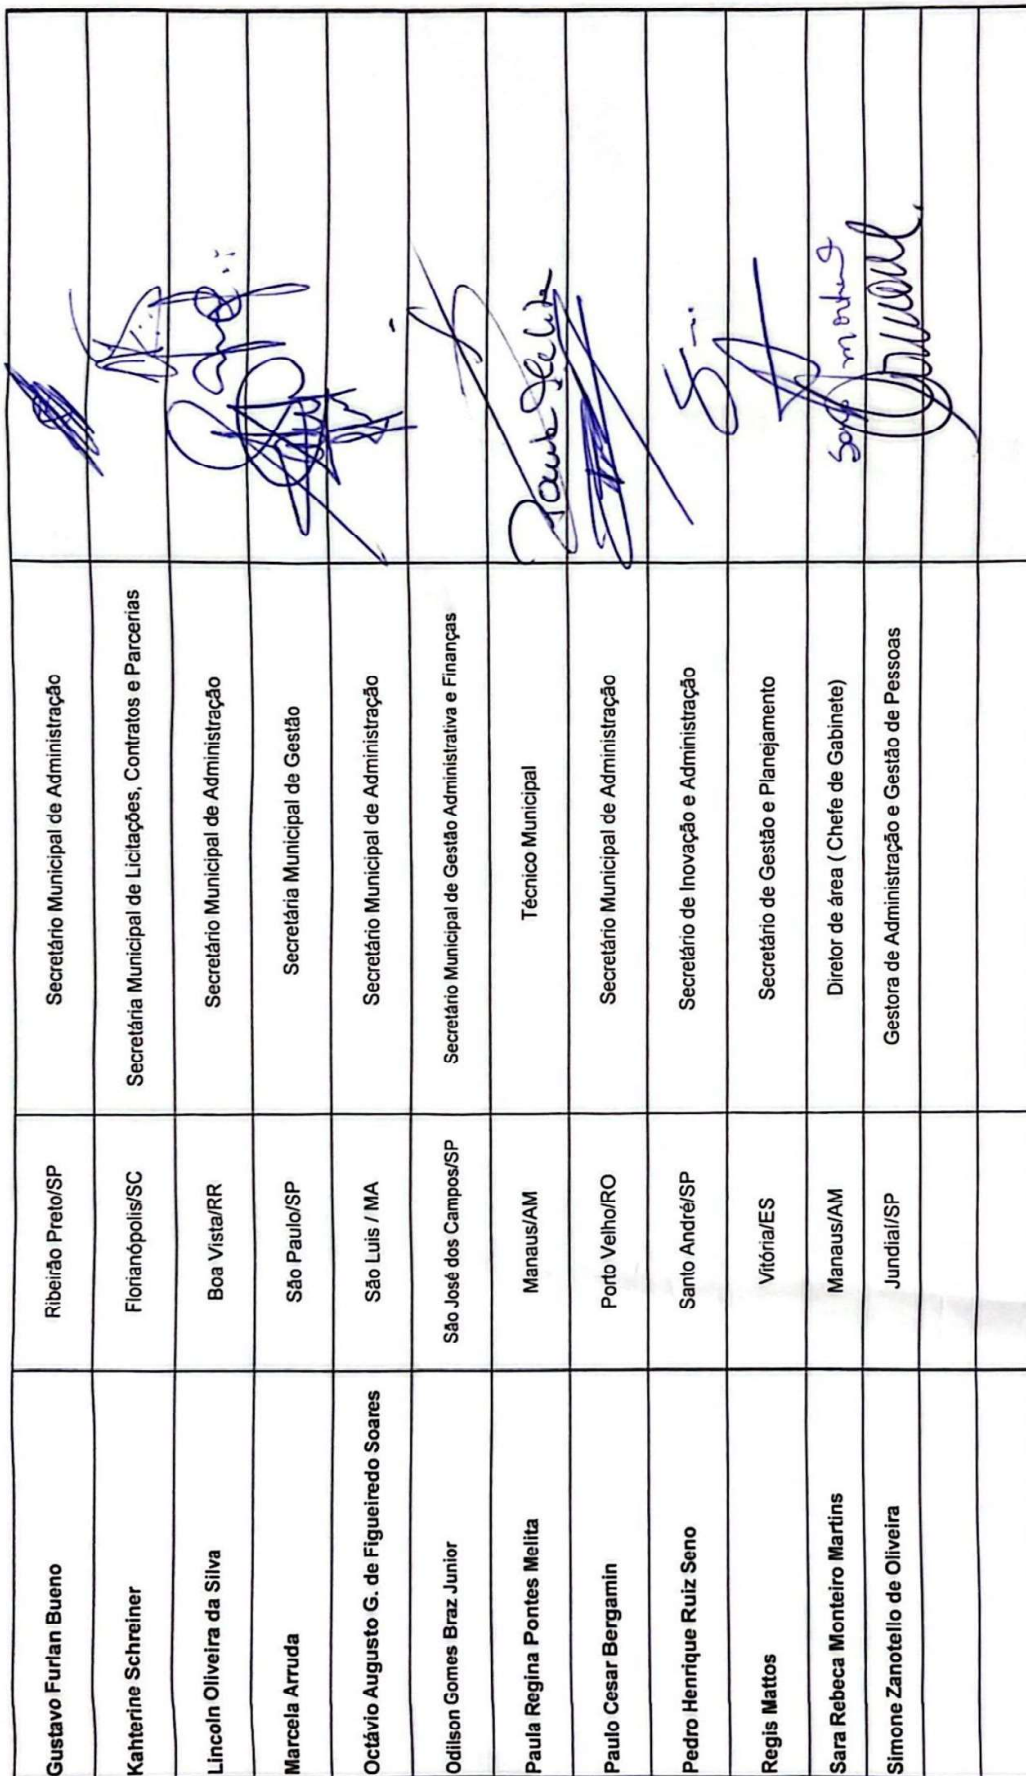 Gustavo Furlan Bueno Ribeirão Preto/SP Secretário Municipal de Administração
Kahterine Schreiner Florianópolis/SC Secretária Municipal de Licitações, Contratos e Parcerias
Lincoln Oliveira da Silva Boa Vista/RR Secretário Municipal de Administração
Marcela Arruda São Paulo/SP Secretária Municipal de Gestão
Octávio Augusto G. de Figueiredo Soares São Luis / MA Secretário Municipal de Administração
Odilson Gomes Braz Junior São José dos Campos/SP Secretário Municipal de Gestão Administrativa e Finanças
Paula Regina Pontes Melita Manaus/AM Técnico Municipal Paula Melita
Paulo Cesar Bergamin Porto Velho/RO Secretário Municipal de Administração
Pedro Henrique Ruiz Seno Santo André/SP Secretário de Inovação e Administração
Regis Mattos Vitória/ES Secretário de Gestão e Planejamento
Sara Rebeca Monteiro Martins Manaus/AM Diretor de área ( Chefe de Gabinete)
Simone Zanotello de Oliveira Jundiaí/SP Gestora de Administração e Gestão de Pessoas